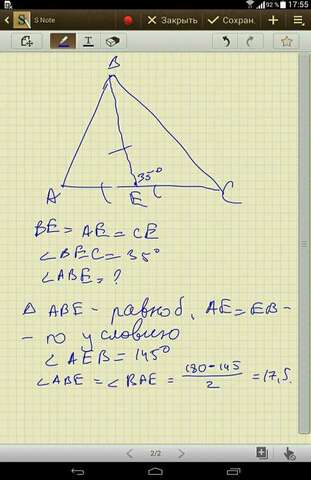 S Note
92 % 17:55
Закрыть
Сохран.
T
B
35°
A
E
C
BE = AE = CE
∠BEC = 35°
∠ABE = ?
△ ABE - равноб, AE = EB -
- по условию
∠AEB = 145°
∠ABE = ∠BAE = (180-145)/2 = 17,5.
2/2